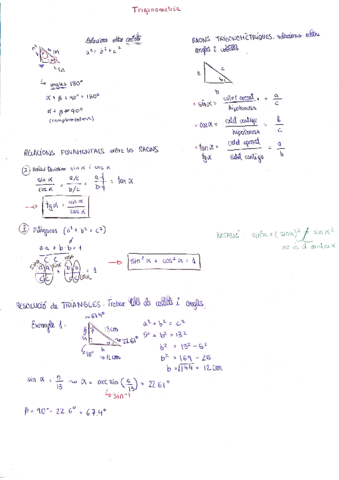 Trigonometria
Relacions entre costats
a² = b² + c²
↳ angles 180°
α + β + 90° = 180°
α + β = 90°
(complementaris)
RAONS TRIGONOMÈTRIQUES: relacions entre angles i costats
a
c
b
· sin α = catet oposat / hipotenusa = a/c
· cos α = catet contigu / hipotenusa = b/c
· tan α = catet oposat / catet contigu = a/b
tg α
RELACIONS FONAMENTALS entre les RAONS
sin α / cos α = a/c / b/c = tan α
tg α = sin α / cos α
① Pitàgores (a² + b² = c²)
= 1
sin² α + cos² α = 1
NOTACIÓ sin² α = (sin α)² ≠ sin α²
RESOLUCIÓ de TRIANGLES: Trobar costats i angles
Exemple 1:
13cm
22.61°
90°
12cm
a² + b² = c²
5² + b² = 13²
b² = 13² - 5²
b² = 169 - 25
b = √144 = 12cm
sin α = 5/13 → α = arcsin (5/13) = 22.61°
↳ sin⁻¹
β = 90° - 22.6° = 67.4°